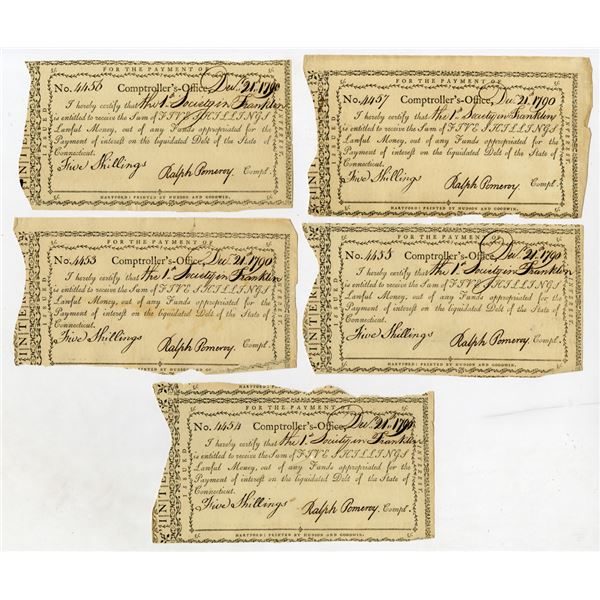 FOR THE PAYMENT OF
No. 4456 Comptroller's-Office, Dec. 21st 1790
I hereby certify that The 1st Society in Franklin
is entitled to receive the Sum of FIVE SHILLINGS
Lawful Money, out of any Funds appropriated for the
Payment of interest on the liquidated Debt of the State of
Connecticut.
Five Shillings Ralph Pomeroy. Compt.
HARTFORD: PRINTED BY HUDSON AND GOODWIN.
ISSUED
INTE
FOR THE PAYMENT OF
No. 4457 Comptroller's-Office, Dec. 21st 1790
I hereby certify that The 1st Society in Franklin
is entitled to receive the Sum of FIVE SHILLINGS
Lawful Money, out of any Funds appropriated for the
Payment of interest on the liquidated Debt of the State of
Connecticut.
Five Shillings Ralph Pomeroy. Compt.
HARTFORD: PRINTED BY HUDSON AND GOODWIN.
ISSUED
INTEREST
FOR THE PAYMENT OF
No. 4453 Comptroller's-Office, Dec. 21st 1790
I hereby certify that The 1st Society in Franklin
is entitled to receive the Sum of FIVE SHILLINGS
Lawful Money, out of any Funds appropriated for the
Payment of interest on the liquidated Debt of the State of
Connecticut.
Five Shillings Ralph Pomeroy. Compt.
HARTFORD: PRINTED BY HUDSON
ISSUED
INTER
FOR THE PAYMENT OF
No. 4455 Comptroller's-Office, Dec. 21st 1790
I hereby certify that The 1st Society in Franklin
is entitled to receive the Sum of FIVE SHILLINGS
Lawful Money, out of any Funds appropriated for the
Payment of interest on the liquidated Debt of the State of
Connecticut.
Five Shillings Ralph Pomeroy. Compt.
HARTFORD: PRINTED BY HUDSON AND GOODWIN.
ISSUED
INTEREST
HARTFORD: PRINTED BY HUDSON AND GOODWIN
FOR THE PAYMENT OF
No. 4454 Comptroller's-Office, Dec. 21st 1790
I hereby certify that The 1st Society in Franklin
is entitled to receive the Sum of FIVE SHILLINGS
Lawful Money, out of any Funds appropriated for the
Payment of interest on the liquidated Debt of the State of
Connecticut.
Five Shillings Ralph Pomeroy Compt.
HARTFORD: PRINTED BY HUDSON AND GOODWIN.
ISSUED
INTE